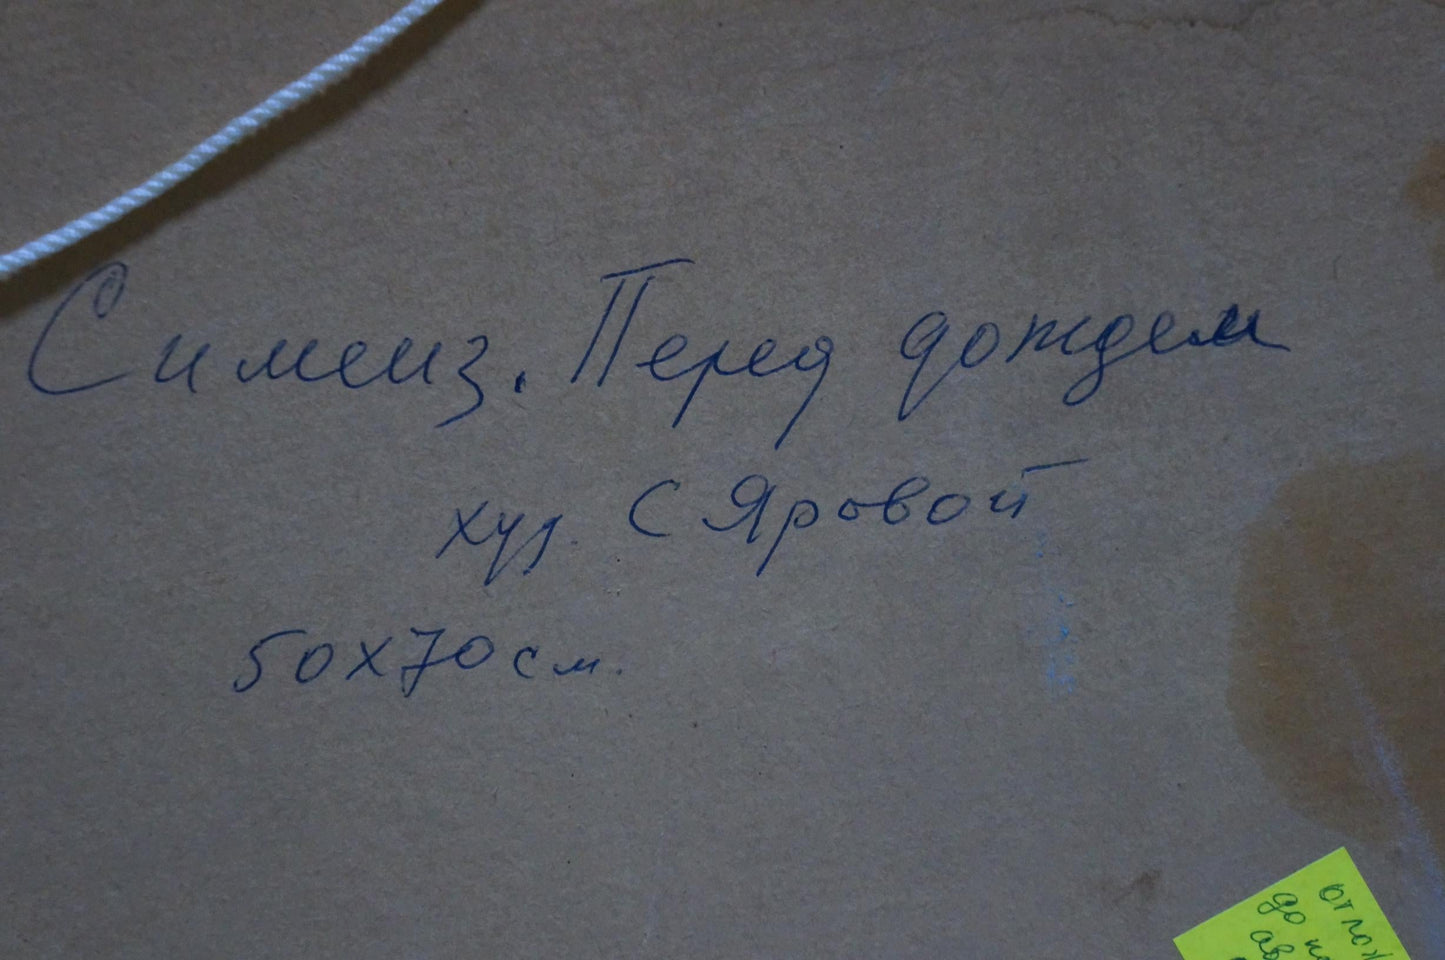 Симеиз. Перед дождем
худ. С Яровой
50х70 см.
до